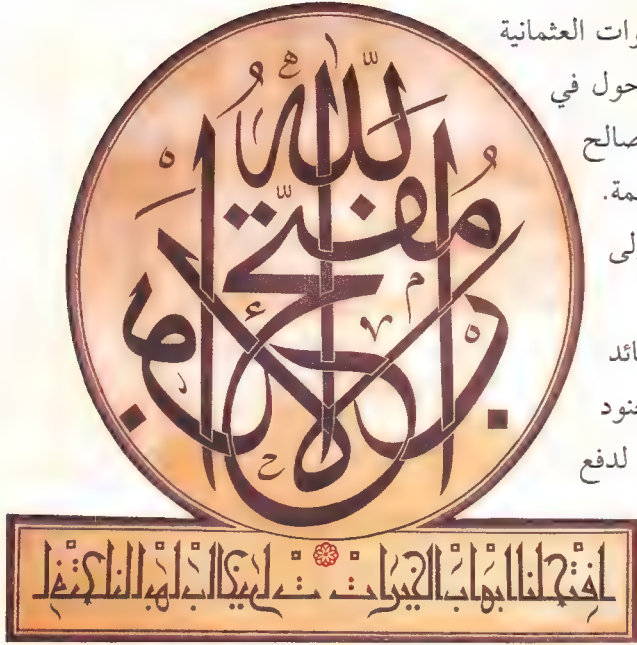 العثمانية
حول في
صالح
مة.
لى
ائد
نود
لدفع
الله
مفتح
الابواب
افتح لنا ابواب الخيرات